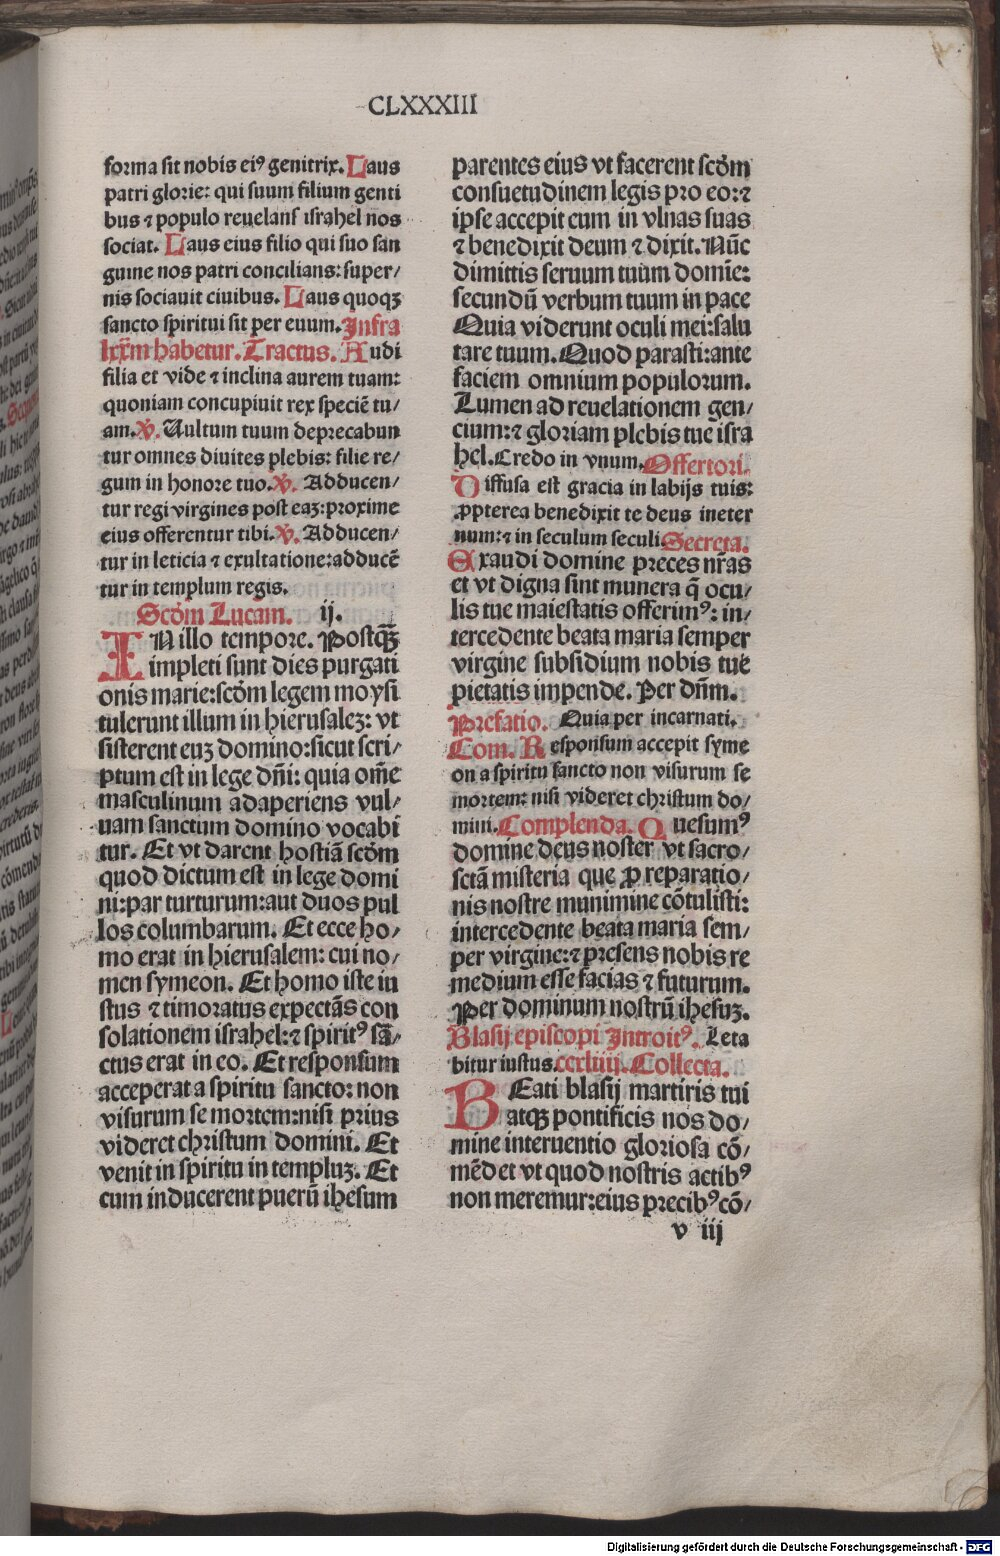 CLXXXIII
forma sit nobis eiꝰ genitrix. Laus
patri glorie: qui suum filium genti
bus ⁊ populo reuelans israhel nos
sociat. Laus eius filio qui suo san
guine nos patri concilians: super/
nis sociauit ciuibus. Laus quoqꝫ
sancto spiritui sit per euum. Infra
lxx̄m habetur. Tractus. Audi
filia et vide ⁊ inclina aurem tuam:
quoniam concupiuit rex speciē tu/
am. ℣. Uultum tuum deprecabun
tur omnes diuites plebis: filie re/
gum in honore tuo. ℣. Adducen/
tur regi virgines post eaꝫ: proxime
eius offerentur tibi. ℣. Adducen/
tur in leticia ⁊ exultatione: adducē
tur in templum regis.
Scd̄m Lucam. ij.
IN illo tempore. Postqꝫ̄
impleti sunt dies purgati
onis marie: scd̄m legem moysi
tulerunt illum in hierusaleꝫ: vt
sisterent euꝫ domino: sicut scri/
ptum est in lege dn̄i: quia om̄e
masculinum adaperiens vul/
uam sanctum domino vocabi
tur. Et vt darent hostiā scd̄m
quod dictum est in lege domi
ni: par turturum: aut duos pul
los columbarum. Et ecce ho/
mo erat in hierusalem: cui no/
men symeon. Et homo iste iu
stus ⁊ timoratus expectās con
solationem israhel: ⁊ spiritꝰ sā/
ctus erat in eo. Et responsum
acceperat a spiritu sancto: non
visurum se mortem: nisi prius
videret christum domini. Et
venit in spiritu in templuꝫ. Et
cum inducerent puerū ihesum
parentes eius vt facerent scd̄m
consuetudinem legis pro eo: ⁊
ipse accepit eum in vlnas suas
⁊ benedixit deum ⁊ dixit. Nūc
dimittis seruum tuum domīe:
secundū verbum tuum in pace
Quia viderunt oculi mei: salu
tare tuum. Quod parasti: ante
faciem omnium populorum.
Lumen ad reuelationem gen/
cium: ⁊ gloriam plebis tue isra
hel. Credo in vnum. Offertori.
Diffusa est gracia in labijs tuis:
ꝓpterea benedixit te deus in eter
num: ⁊ in seculum seculi. Secreta.
Exaudi domine preces nr̄as
et vt digna sint munera q̄ ocu/
lis tue maiestatis offerimꝰ: in/
tercedente beata maria semper
virgine subsidium nobis tue
pietatis impende. Per dn̄m.
Prefatio. Quia per incarnati.
Com. Responsum accepit syme
on a spiritu sancto non visurum se
mortem: nisi videret christum do/
mini. Complenda. Quesumꝰ
domine deus noster vt sacro/
sctā misteria que ꝓ reparatio/
nis nostre munimine cōtulisti:
intercedente beata maria sem/
per virgine: ⁊ presens nobis re
medium esse facias ⁊ futurum.
Per dominum nostrū ihesuꝫ.
Blasij episcopi Introitꝰ. Leta
bitur iustus. ccxliiij. Collecta.
BEati blasij martiris tui
atqꝫ pontificis nos do/
mine interuentio gloriosa cō/
mēdet vt quod nostris actibꝰ
non meremur: eius precibꝰ cō/
v iij
Digitalisierung gefördert durch die Deutsche Forschungsgemeinschaft - DFG